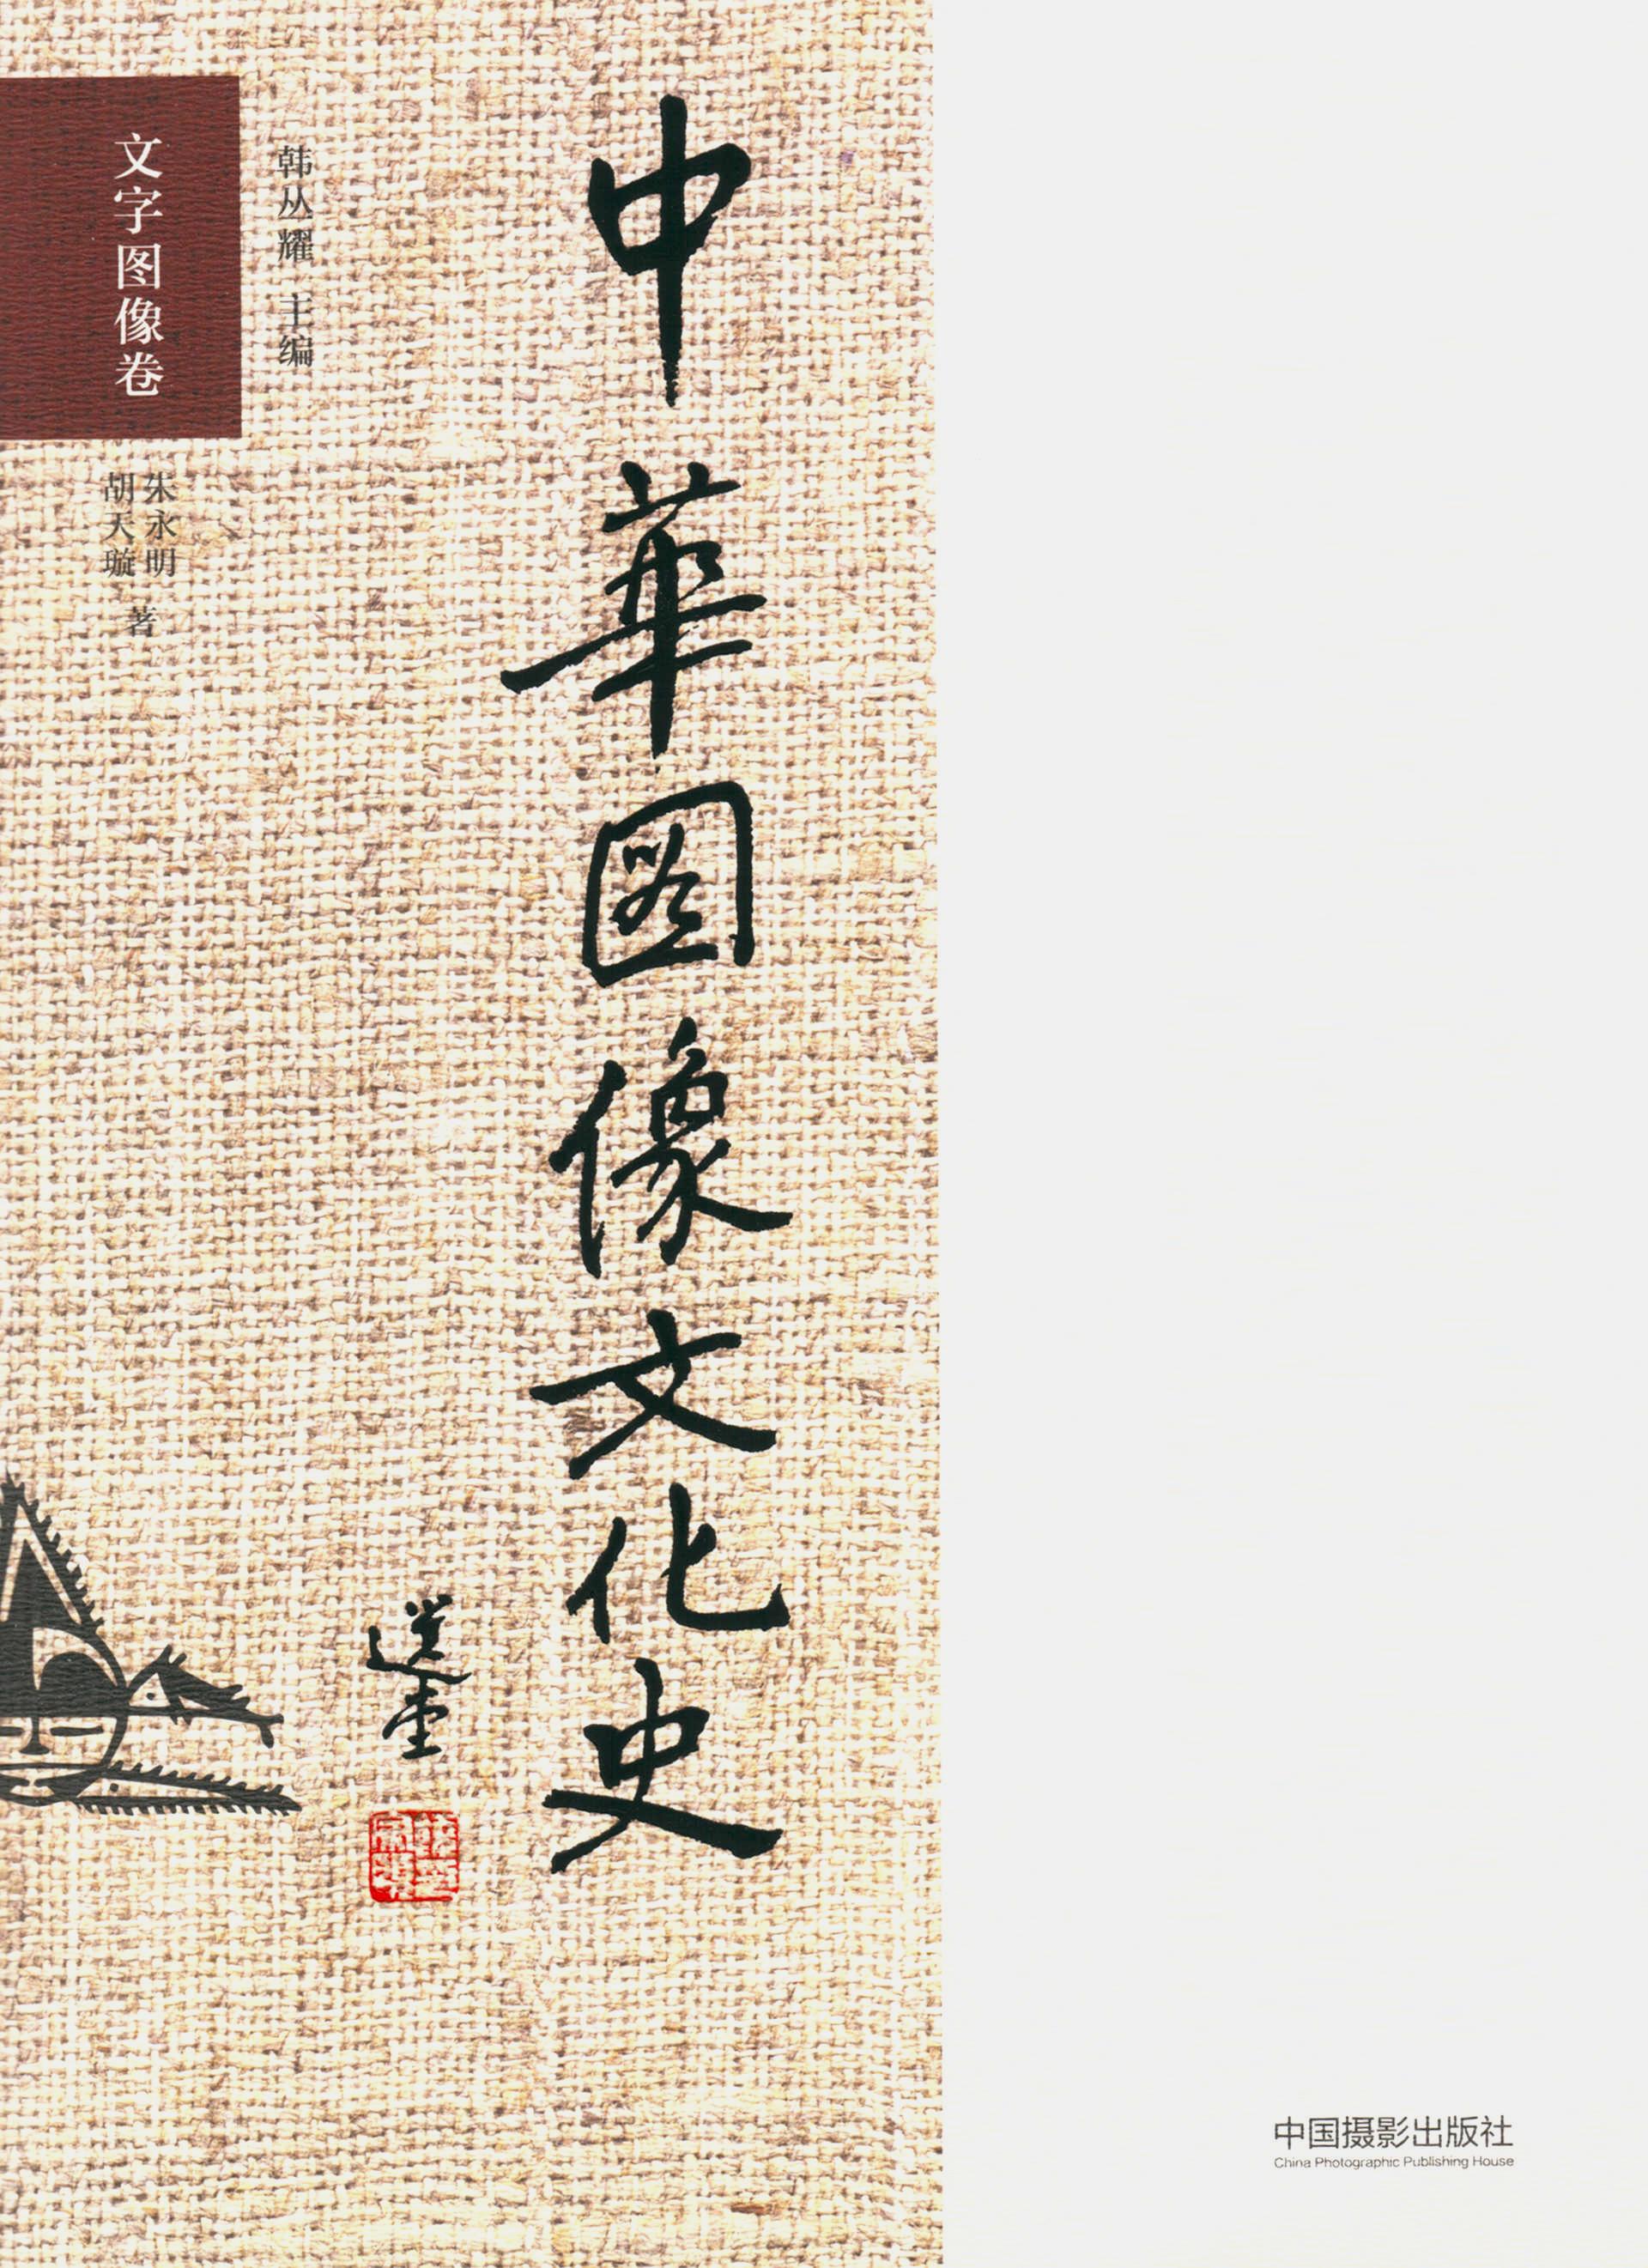 中華图像文化史
選堂
韩丛耀 主编
文字图像卷
朱永明
胡天璇
著
中国摄影出版社
China Photographic Publishing House